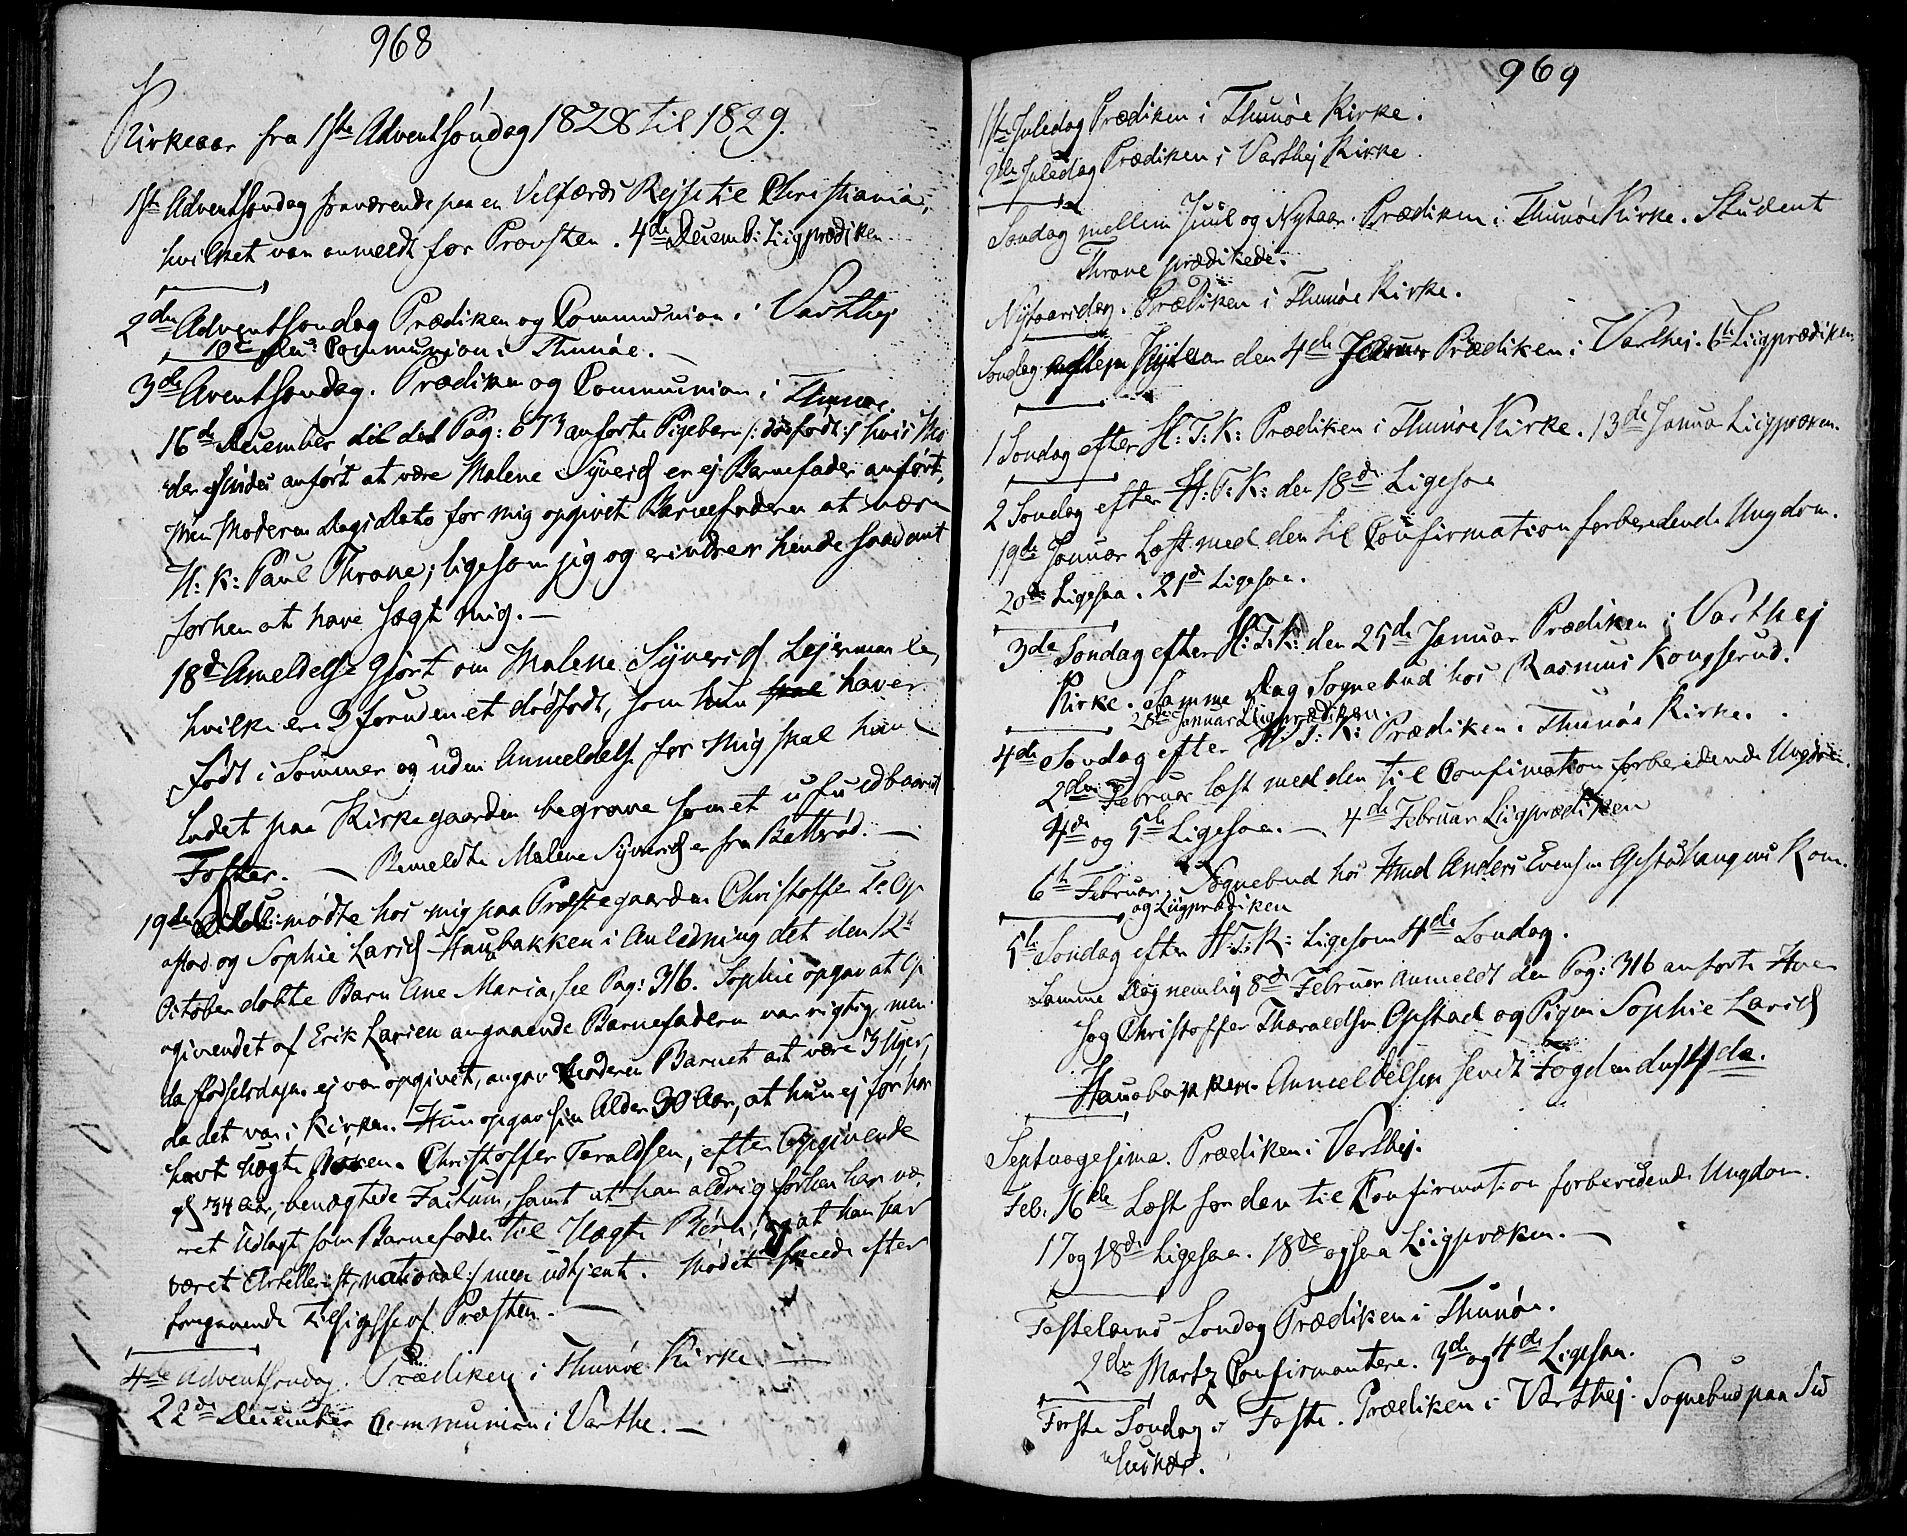 968
Kirkeaar fra 1ste Adventsöndag 1828 til 1829.
1ste Adventsöndag fraværende paa en Velfærds Rejse til Christiania,
hvilket var anmeldt for Provsten. 4de Decemb: Liigprædiken.
2den Adventsöndag Prædiken og Communion i Varthej
10de Dec: Communion i Thunöe. —
3de Aventsöndag. Prædiken og Communion i Thunöe.
16de December till det Pag: 673 anförte Pigebarn /: dödfödt :/ hvis Mo-
der findes anfört at være Malene Syversd er ej Barnefader anfört,
Men Moderen Dags Dato for mig opgivet Barnefaderen at være
U: K: Paul Throne; ligesom jeg og erindrer hende saadant
forhen at have sagt mig. —
18de Ameldelse gjort om Malene Syversd Lejermaale,
hvilke ere 3 foruden et dödfödt, som hun skal haver
födt i Sommer og uden Anmeldelse for Mig skal have
ladet paa Kirkegaarden begrave som et ufuldbaaret
Foster. — Bemeldte Malene Syversd er fra Bettröd. —
19de Decb: mödte hos mig paa Præstegaarden Christoffer T: Op
stad og Sophie Larsd Haubakken i Anledning det den 12te
October döbte Barn Ane Maria, see Pag: 316. Sophie opgav at Op
givendet af Erik Larsen angaaende Barnefaderen var rigtig, men
da Födselsdagen ej var opgivet, angav Moderen Barnet at være 3 Uger,
da det var i Kirken. Hun opgav sin Alder 30 Aar, at hun ej för har
havt uægte Börn. Christoffer Taraldsen, efter Opgivende
34 Aar, benægtede Factum, samt at han aldrig forhen har væ-
ret Udlagt som Barnefader til Uægte Börn, og at han har
været Artillerist, national :/ men udtjent. Mödet skeede efter
foregaaende Tilsigelse af Præsten. —
4de Adventsöndag. Prædiken i Thunöe Kirke —
22de December Communion i Varthe. —
969
1ste Juledag Prædiken i Thunöe Kirke.
2den Juledag Prædiken i Varthej Kirke.
Söndag mellem Juul og Nytaar. Prædiken i Thunöe Kirke. Student
Throne prædikede.
Nytaarsdag. Prædiken i Thunöe Kirke.
Söndag efter Nytaar den 4de Prædiken i Varthej. 6te Liigprædiken
1 Söndag efter H: T: K: Prædiken i Thunöe Kirke. 13de Januar Liigprædiken.
2 Söndag efter H: T: K: den 18de Ligesaa
19de Januar Læst med den til Confirmation forberedende Ungdom.
20de Ligesaa. 21de Ligesaa.
3de Söndag efter H: T: K: den 25de Januar Prædiken i Varthej
Kirke. Samme Dag Sognebud hos Rasmus Kongsrud.
28de Januar Liigprædiken.
4de Söndag efter H: T: K: Prædiken i Thunöe Kirke.
2den Februar læst med den til Confirmation forberedende Ungdom.
4de og 5te Ligesaa. — 4de Februar Liigprædiken
6te Februar. Sognebud hos Hmd Anders Evensen Opstadhaugens Kone.
og Liigprædiken
5te Söndag efter H: T: K: Ligesom 4de Söndag.
Samme Dag nemlig 8de Februar anmeldt den Pag: 316 anförte
sag Christoffer Tharaldsen Opstad og Pigen Sophie Larsd
Haubakken. Anmeldelsen sendt Fogden den 14de.
Septuagesima. Prædiken i Varthej.
Feb: 16de Læst for den til Confirmation forberedende Ungdom.
17 og 18de Ligesaa. 18de ogsaa Liigpræken. —
Festelavns Söndag Prædiken i Thunöe.
2den Martz Confirmantere. 3de og 4de Ligesaa.
Förste Söndag i Faste. Prædiken i Varthej. Sognebud paa Sid